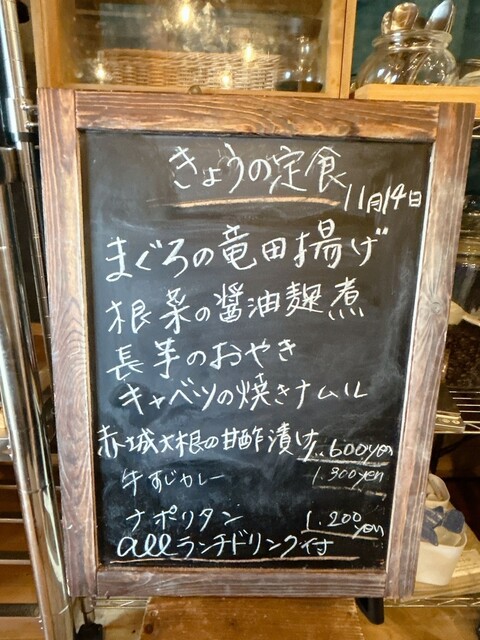 きょうの定食
11月14日
まぐろの竜田揚げ
根菜の醤油麹煮
長芋のおやき
キャベツの焼きナムル
赤城大根の甘酢漬け 1,600yen
牛すじカレー 1,300yen
ナポリタン 1,200yen
allランチドリンク付